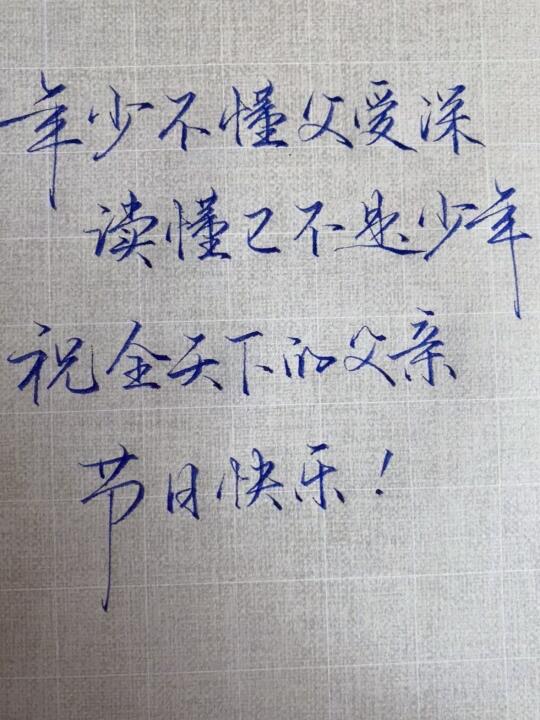 年少不懂父爱深
读懂已不是少年
祝全天下的父亲
节日快乐！